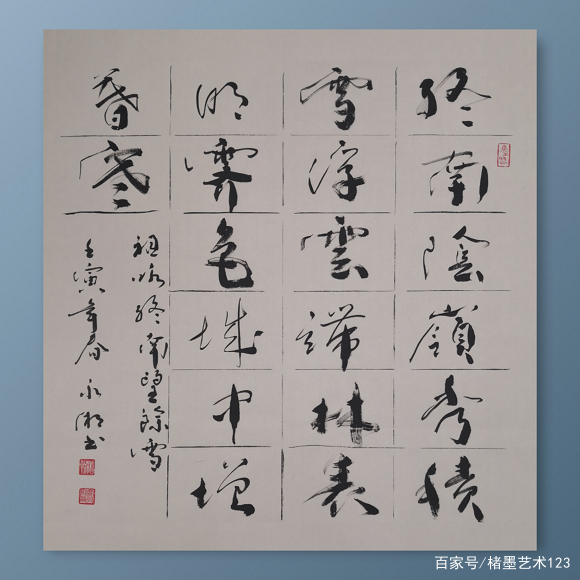 終南陰嶺秀積
雪浮雲端林表
明霽色城中增
暮寒
祖詠終南望餘雪
壬寅年春永书
百家号/楮墨艺术123